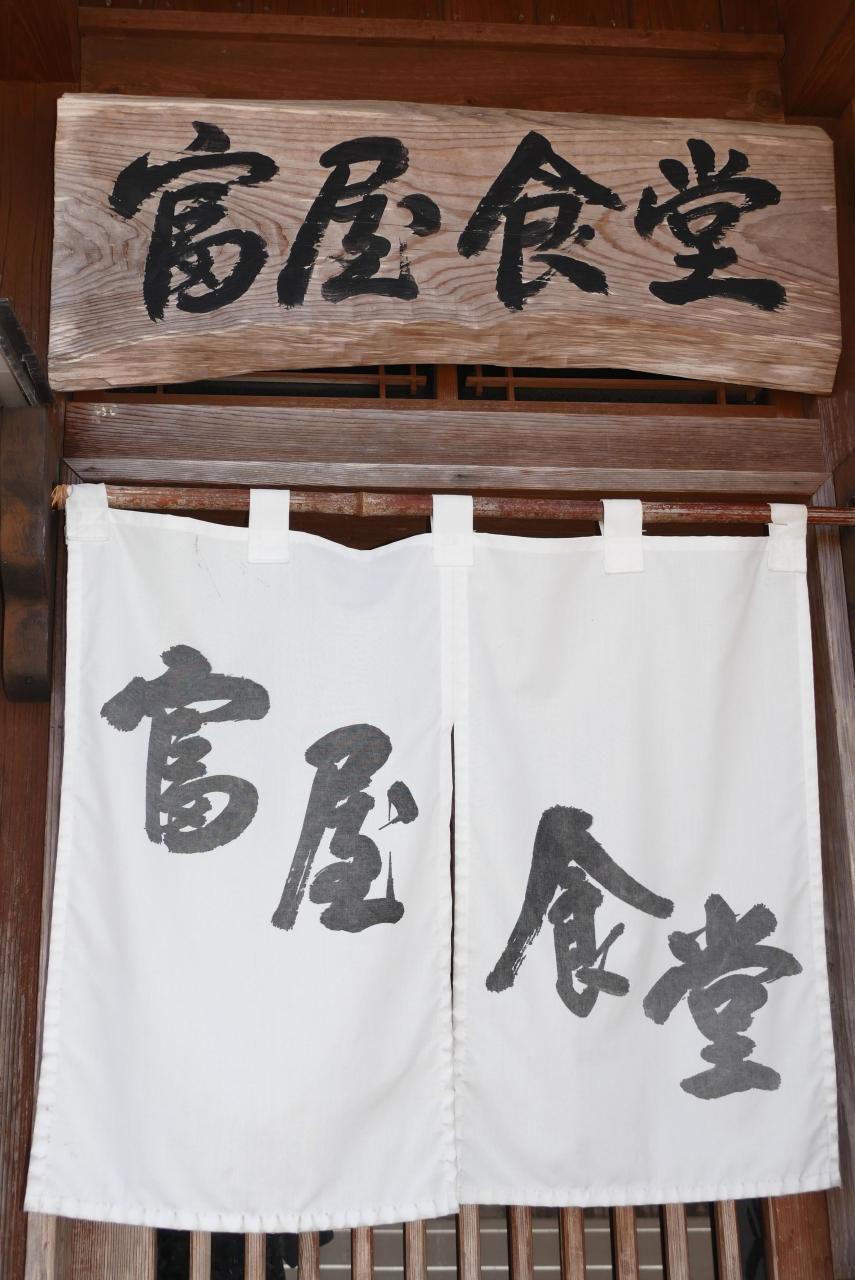 富屋食堂
富屋食堂